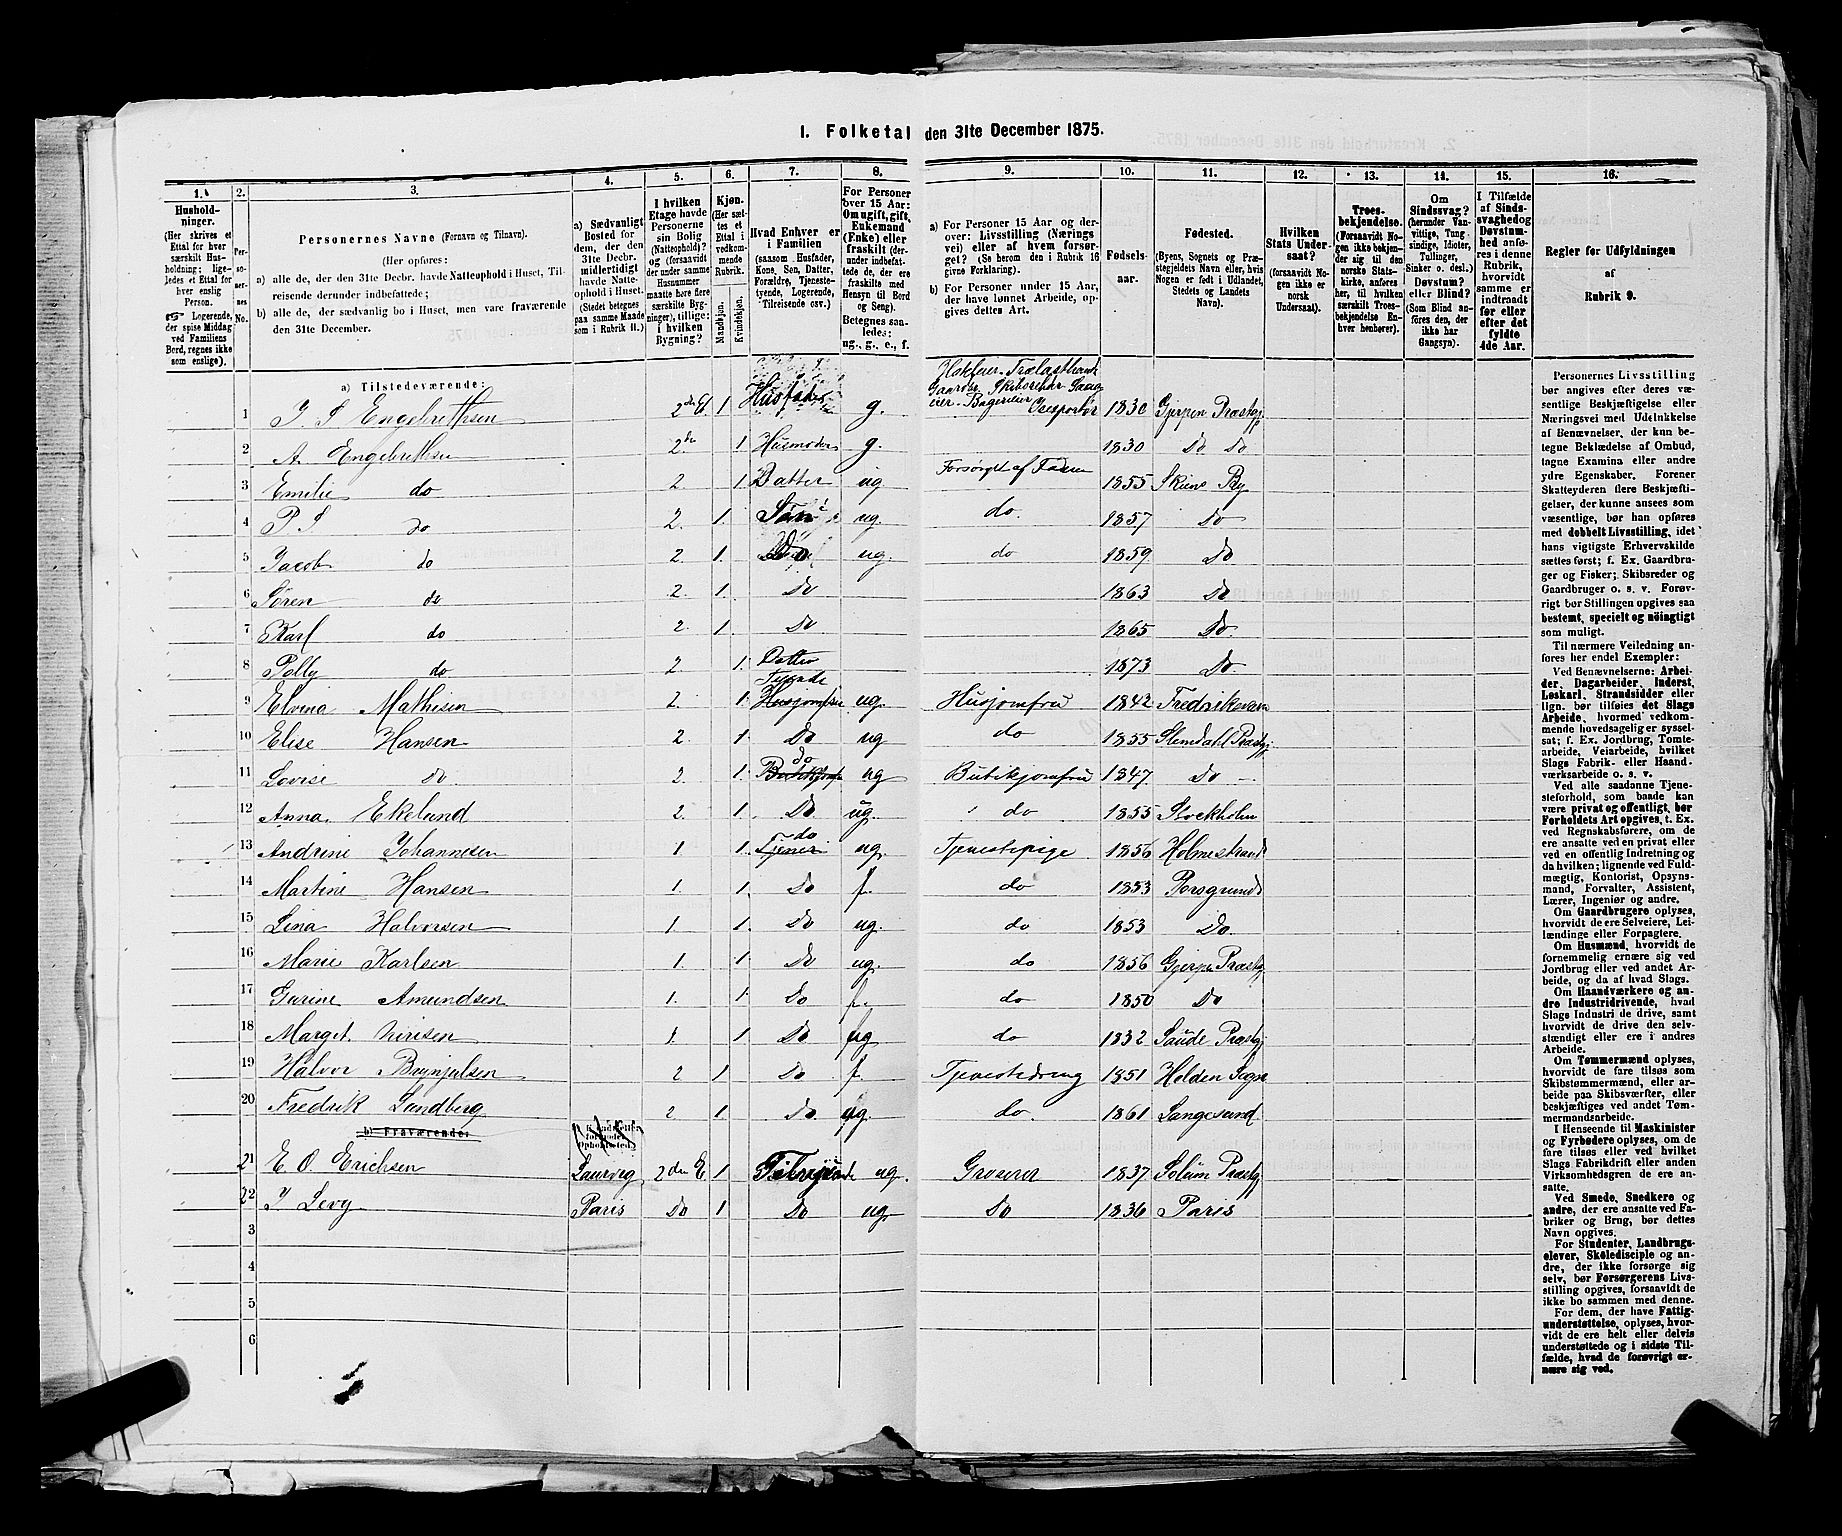 1. Folketal den 31te December 1875.
1. 2. 3. 4. 5. 6. 7. 8. 9. 10. 11. 12. 13. 14. 15. 16.
Hushold-
ninger.
(Her skrives et
Ettal for hver
særskilt Hus-
holdning; lige-
ledes et Ettal for
hver enslig
Person.
Logerende,
der spise Middag
ved Familiens
Bord, regnes ikke
som enslige).
Per-
so-
ner-
nes
No.
Personernes Navne (Fornavn og Tilnavn).
(Her opføres:
a) alle de, der den 31te Decbr. havde Natteophold i Huset, Til-
reisende derunder indbefattede;
b) alle de, der sædvanlig bo i Huset, men vare fraværende
den 31te December.
a) Sædvanligt
Bosted for
dem, der den
31te Decbr.
midlertidigt
havde Natte-
ophold i Huset.
(Stedet betegnes
paa samme Maade
som i Rubrik II.)
I hvilken
Etage havde
Personerne
sin Bolig
(Natteophold)?
og (forsaavidt
der under samme
Husnummer
maatte høre flere
særskilte Byg-
ninger), tillige:
i hvilken
Bygning?
Kjøn.
(Her sæt-
tes et
Ettal i
vedkom-
mende
Rubrik.
Mandkjøn.
Kvindekjøn.
Hvad Enhver er
i Familien
(saasom Husfader,
Kone, Søn, Datter,
Forældre, Tjeneste-
tyende, Logerende,
Tilreisende osv.)
For Personer
over 15 Aar:
Om ugift, gift,
Enkemand
(Enke) eller
fraskilt (der-
under indbefat-
tede de, der ere
fraskilte med
Hensyn til Bord
og Seng).
Betegnes saa-
ledes:
ug., g., e., f.
a) For Personer 15 Aar og der-
over: Livsstilling (Nærings
vei) eller af hvem forsør-
get? (Se herom den i Rubrik 16
givne Forklaring).
b) For Personer under 15 Aar,
der have lønnet Arbeide, op-
gives dettes Art.
Fødsels-
aar.
Fødested.
(Byens, Sognets og Præ-
stegjeldets Navn eller, hvis
Nogen er født i Udlandet,
Stedets og Landets
Navn).
Hvilken
Stats Under-
saat?
(forsaavidt No-
gen ikke er
norsk
Undersaat).
Troes-
bekjendelse.
(Forsaavidt No-
gen ikke bekjen-
der sig til den
norske Stats-
kirke, anføres
her, til hvilken
særskilt Troes-
bekjendelse En-
hver henhører).
Om
Sindssvag?
(herunder Van-
vittige, Tung
sindige, Idioter,
Tullinger,
Sinker o. desl.)
Døvstum?
eller Blind?
(Som Blind an-
føres den, der
ikke har
Gangsyn).
I Tilfælde
af Sinds-
svaghed og
Døvstum-
hed anfø-
res i denne
Rubrik,
hvorvidt
samme er
indtraadt
før eller
efter det
fyldte
4de Aar.
Regler for Udfyldningen
af
Rubrik 9.
a) Tilstedeværende:
1 I. S Engebrethsen 2den E 1 Husfader g. Gaardeier Skibsreder 1830 Gjerpen Præstgj
2 A Engebrethsen 2de 1 Husmoder g. 1830 Do Do
3 Emilie do 2. 1. Datter ug Forsørget af Faderen 1855 Skiens By
4 P S do 2. 1. Søn ug. do. 1857 Do
5 Jacob do 2 1. Do ug. do 1859 Do
6 Søren do 2. 1. Do 1863 Do
7 Karl do 2. 1. Do 1865 Do.
8 Polly do 2 1. Datter 1873 Do
9 Elvina Mathisen 2. 1. Tyende Husjomfru ug. Husjomfru 1842 Fredriksværn
10 Elise Hansen 2. 1. Do ug do 1855 Slemdahl Præstgj
11 Lovise do 2. 1. do Butikjomfr ug Butikjomfru 1847 Do
12 Anna Ekelund 2 1. Do ug. do 1855 Stockholm
13 Andrine Johannesen 1 1. do Tjener ug. Tjenestepige 1856 Holmestrand
14 Martine Hansen 1. 1. Do f. do 1853 Porsgrund
15 Lina Halvorsen 1. 1. Do ug. do 1853 Do.
16 Marie Karlsen 1. 1. Do ug. do 1856 Gjerpen Præstgj
17 Gurine Amundsen 1. 1 Do f. do 1850 Do
18 Marget 1. 1 Do ug do 1832 Saude Præstgj
19 Halvor Brynjulsen 2 1 Do f. Tjenestedreng 1851 Holden Sogn
20 Fredrik Lundberg 2 1. Do ug. do. 1861 Langesund.
b) Fraværende:
21 E O. Erichsen Laurvig 2den E 1 Tilreisende ug. Grosserer 1837 Solum Præstgj
22 J Levy Paris Do 1 Do ug Do 1836 Paris
3
4
5
6
Personernes Livsstilling
bør angives efter deres væ-
sentlige Beskjæftigelse eller
Næringsvei med Udelukkelse
af Benævnelser, der kun be-
tegne Beklædelse af Ombud,
tagne Examina eller andre
ydre Egenskaber. Forener
Skatteyderen flere Beskjæfti-
gelser, der kunne ansees som
væsentlige, bør han opføres
med dobbelt Livsstilling, idet
hans vigtigste Erhvervskilde
sættes først; f. Ex. Gaardbru-
ger og Fisker; Skibsreder og
Gaardbruger o. s. v. Forøv-
rigt bør Stillingen opgives saa
bestemt, specielt og nöiagtigt
som muligt.
Til nærmere Veiledning an-
føres her endel Exempler:
Ved Benævnelserne: Arbei-
der, Dagarbeider, Inderst,
Løskarl, Strandsidder eller
lign. bør tilføies det Slags
Arbeide, hvormed vedkom-
mende hovedsagelig er syssel-
sat; f. Ex. Jordbrug, Tomte-
arbeide, Veiarbeide, hvilket
Slags Fabrik- eller Haand-
værksarbeide o. s. v.
Ved alle saadanne Tjene-
steforhold, som baade kan
være privat og offentligt, bør
Forholdets Art opgives, t. Ex.
ved Regnskabsførere, om de
ere ansatte ved en privat eller
ved en offentlig Indretning og
da hvilken; lignende ved Fuld-
mægtig, Kontorist, Opsyns-
mand, Forvalter, Assistent,
Lærer, Ingeniør og andre.
Om Gaardbrugere oplyses,
hvorvidt de ere Selveiere, Lei-
lændinge eller Forpagtere.
Om Husmænd, hvorvidt de
fornemmelig ernære sig ved
Jordbrug eller ved andet Ar-
beide, og da af hvad Slags.
Om Haandværkere og an-
dre Industridrivende, hvad
Slags Industri de drive, samt
hvorvidt de drive den selv-
stændigt eller ere i andres
Arbeide.
Om Tømmermænd oplyses,
hvorvidt de fare tilsøs som
Skibstømmermænd, eller ar-
beide paa Skibsværfter, eller
beskjæftiges ved andet Tøm-
mermandsarbeide.
I Henseende til Maskinister
og Fyrbødere oplyses, om de
fare tilsøs eller ved hvilket
Slags Fabrikdrift eller anden
Virksomhedsgren de ere an-
satte.
Ved Smede, Snedkere og
andre, der ere ansatte ved Fa-
briker og Brug, bør dettes
Navn opgives.
For Studenter, Landbrugs-
elever, Skoledisciple og an-
dre, der ikke forsørge sig
selv, bør Forsørgerens Livs-
stilling opgives, forsaavidt de
ikke bo sammen med denne.
For dem, der have Fattig-
understøttelse, oplyses, hvor-
vidt de ere helt eller delvis
understøttede og i sidste Til-
fælde, hvad de forøvrigt er-
nære sig ved.